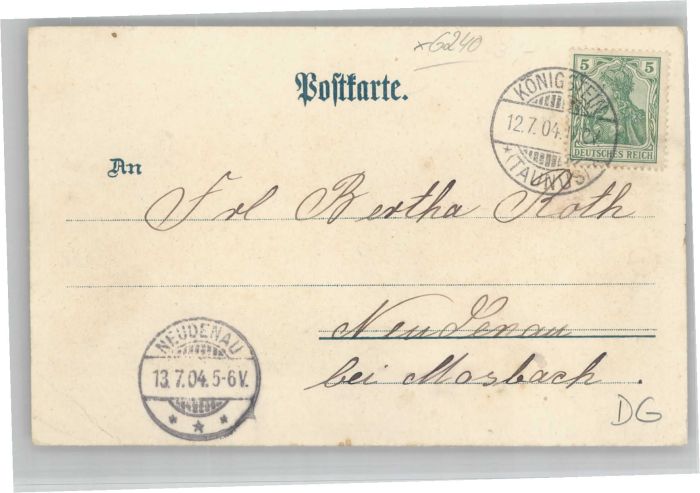 x6240
Postkarte.
5 5
DEUTSCHES REICH
KÖNIGSTEIN
12.7.04.
* (TAUNUS)
An
Frl Bertha Roth
Neudenau
bei Mosbach.
NEUDENAU
13.7.04.5-6V.
* * *
DG